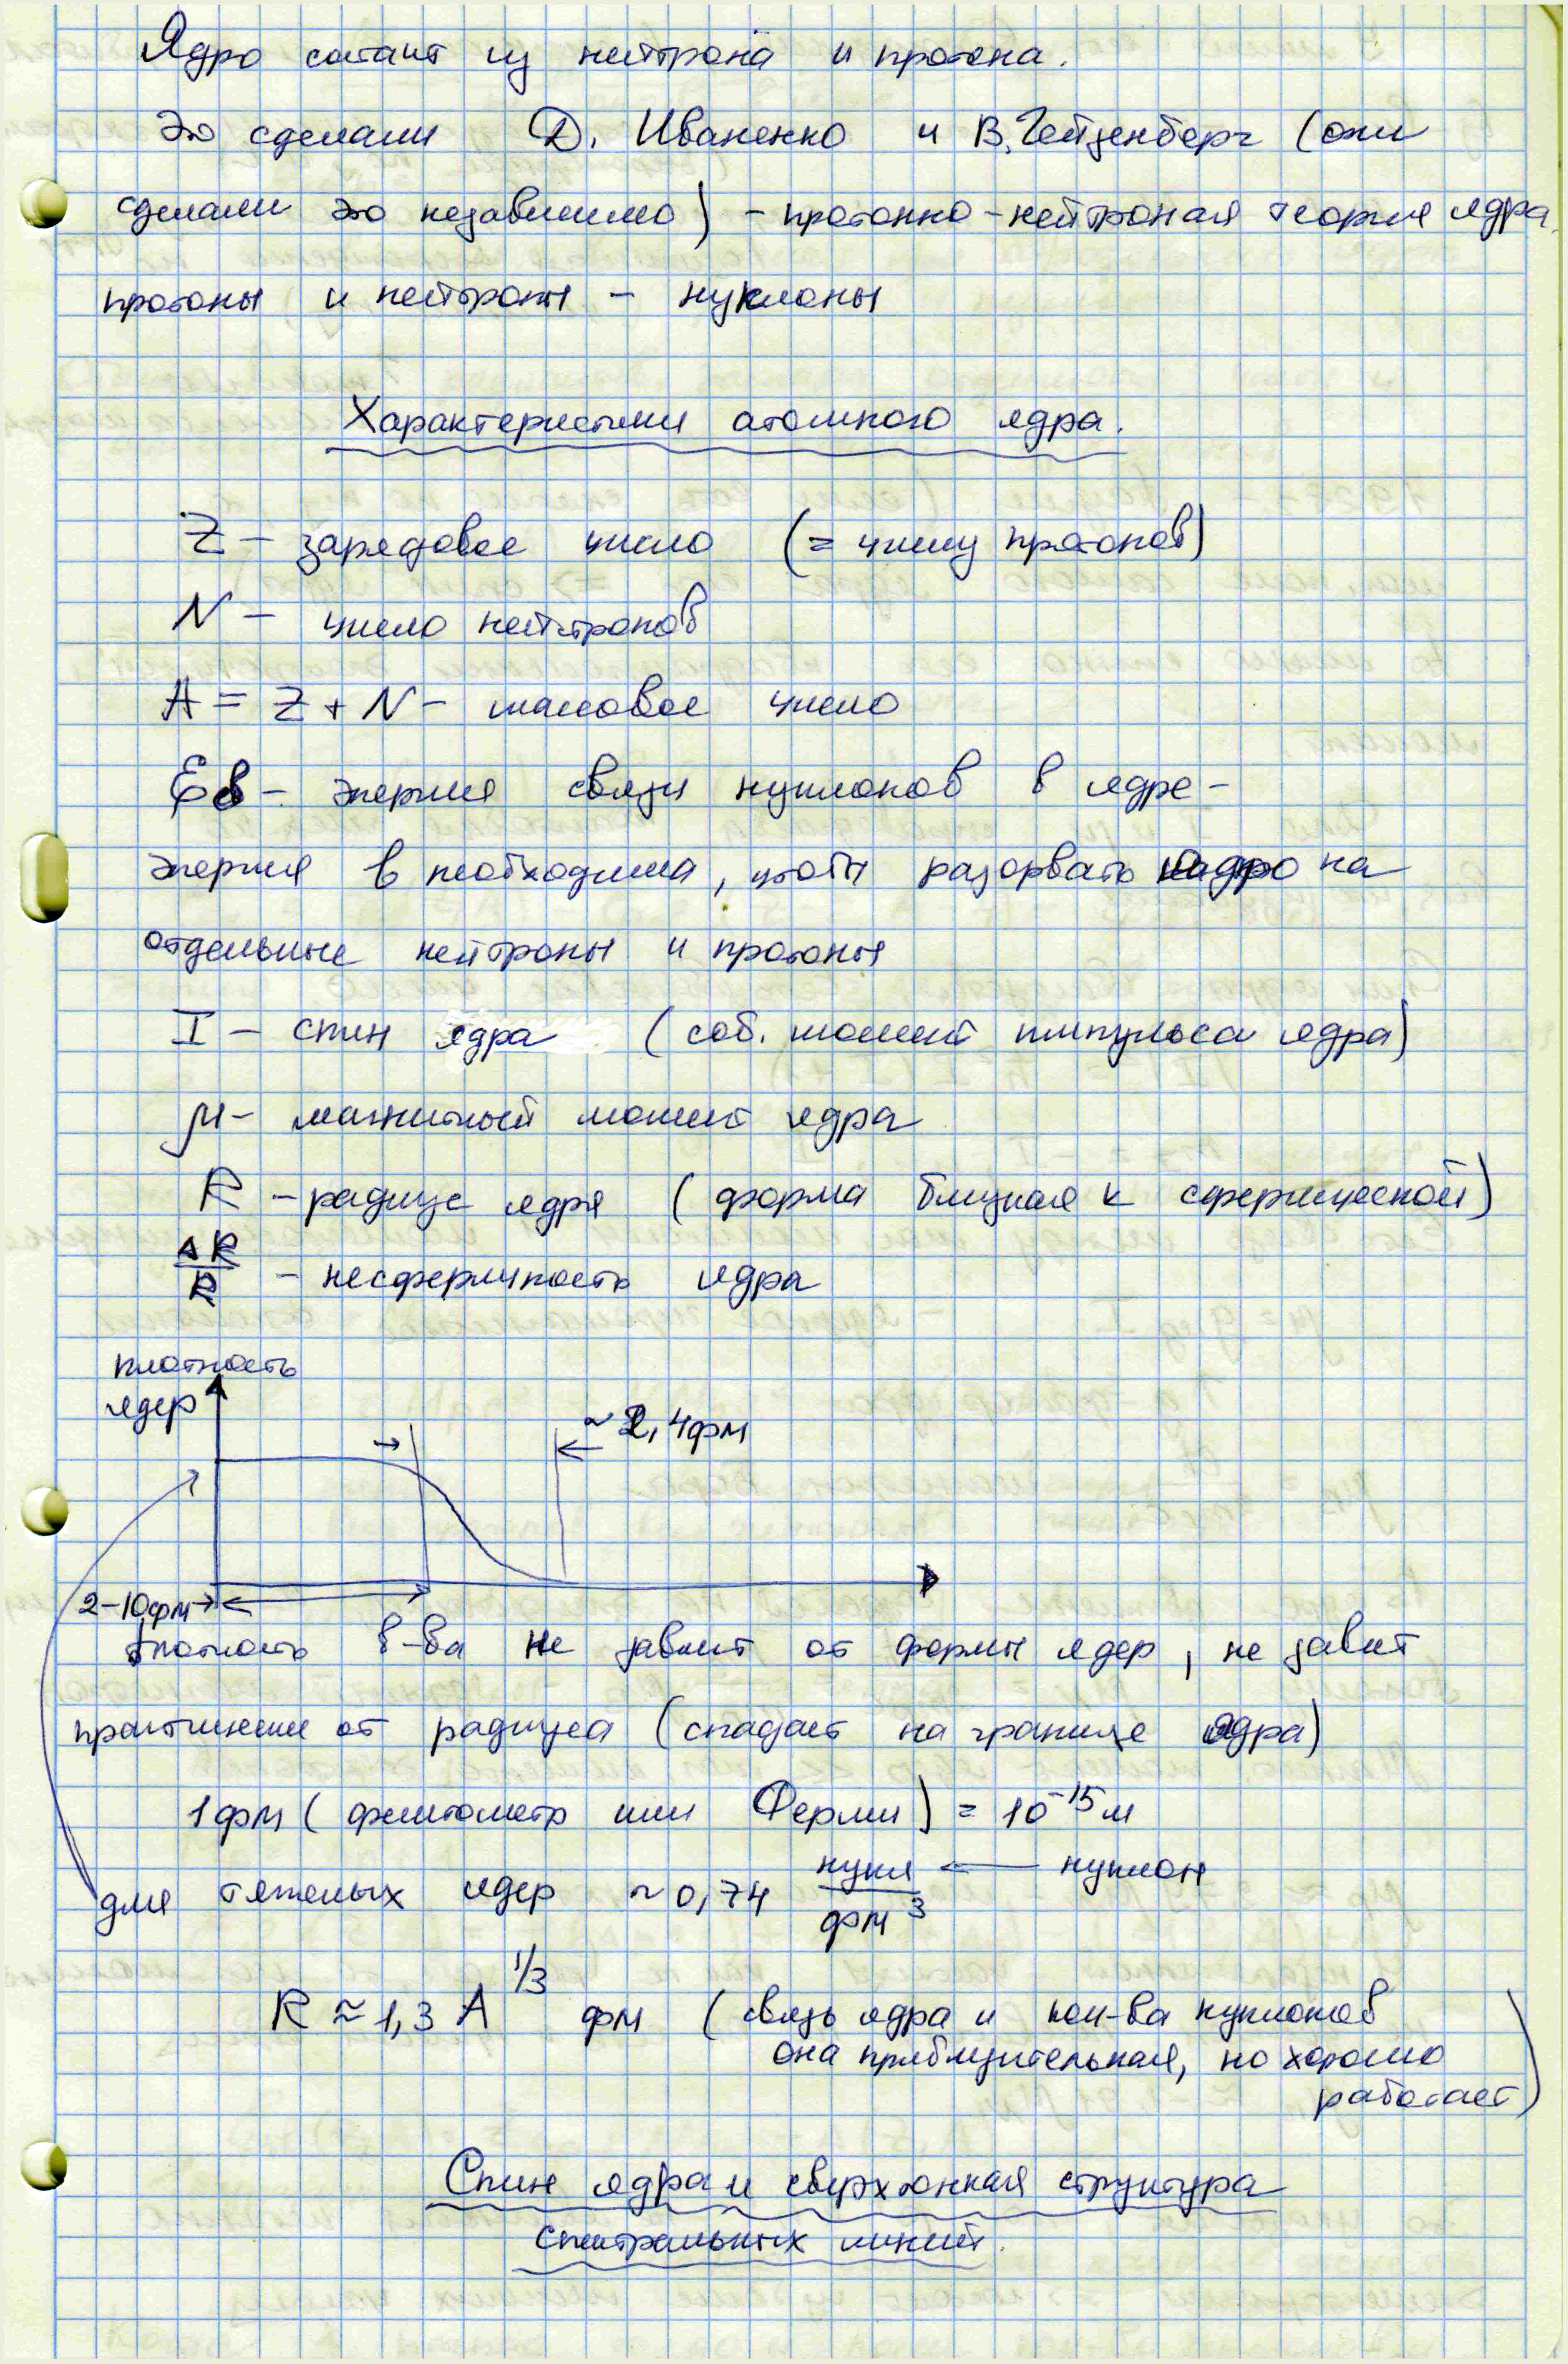 Ядро состаит из нейтрона и протона.
Это сделали Д. Иваненко и В. Гейзенберг (они
сделали это независимо) - протонно-нейтроная теория ядра.
протоны и нейтроны - нуклоны
Характеристики атомного ядра.
Z - зарядовое число (= числу протонов)
N - число нейтронов
A = Z + N - массовое число
Eв - энергия связи нуклонов в ядре -
энергия в необходима, чтобы разорвать ядро на
отдельные нейтроны и протоны
I - спин ядра (соб. момент импульса ядра)
μ - магнитный момент ядра
R - радиус ядра (форма близкая к сферической)
ΔR/R - несферичность ядра
плотность
ядер
~2,4фм
2-10фм
плотность в-ва не зависит от формы ядер, не завит
практически от радиуса (спадает на границе ядра)
1фм (фемтометр или Ферми) = 10^-15 м
для тяжелых ядер ~0,74 нукл/фм^3 ← нуклон
R ≈ 1,3 A^1/3 фм (связь ядра и кол-ва нуклонов
она приблизительная, но хорошо
работает)
Спин ядра и сверхтонкая структура
спектральных линий.